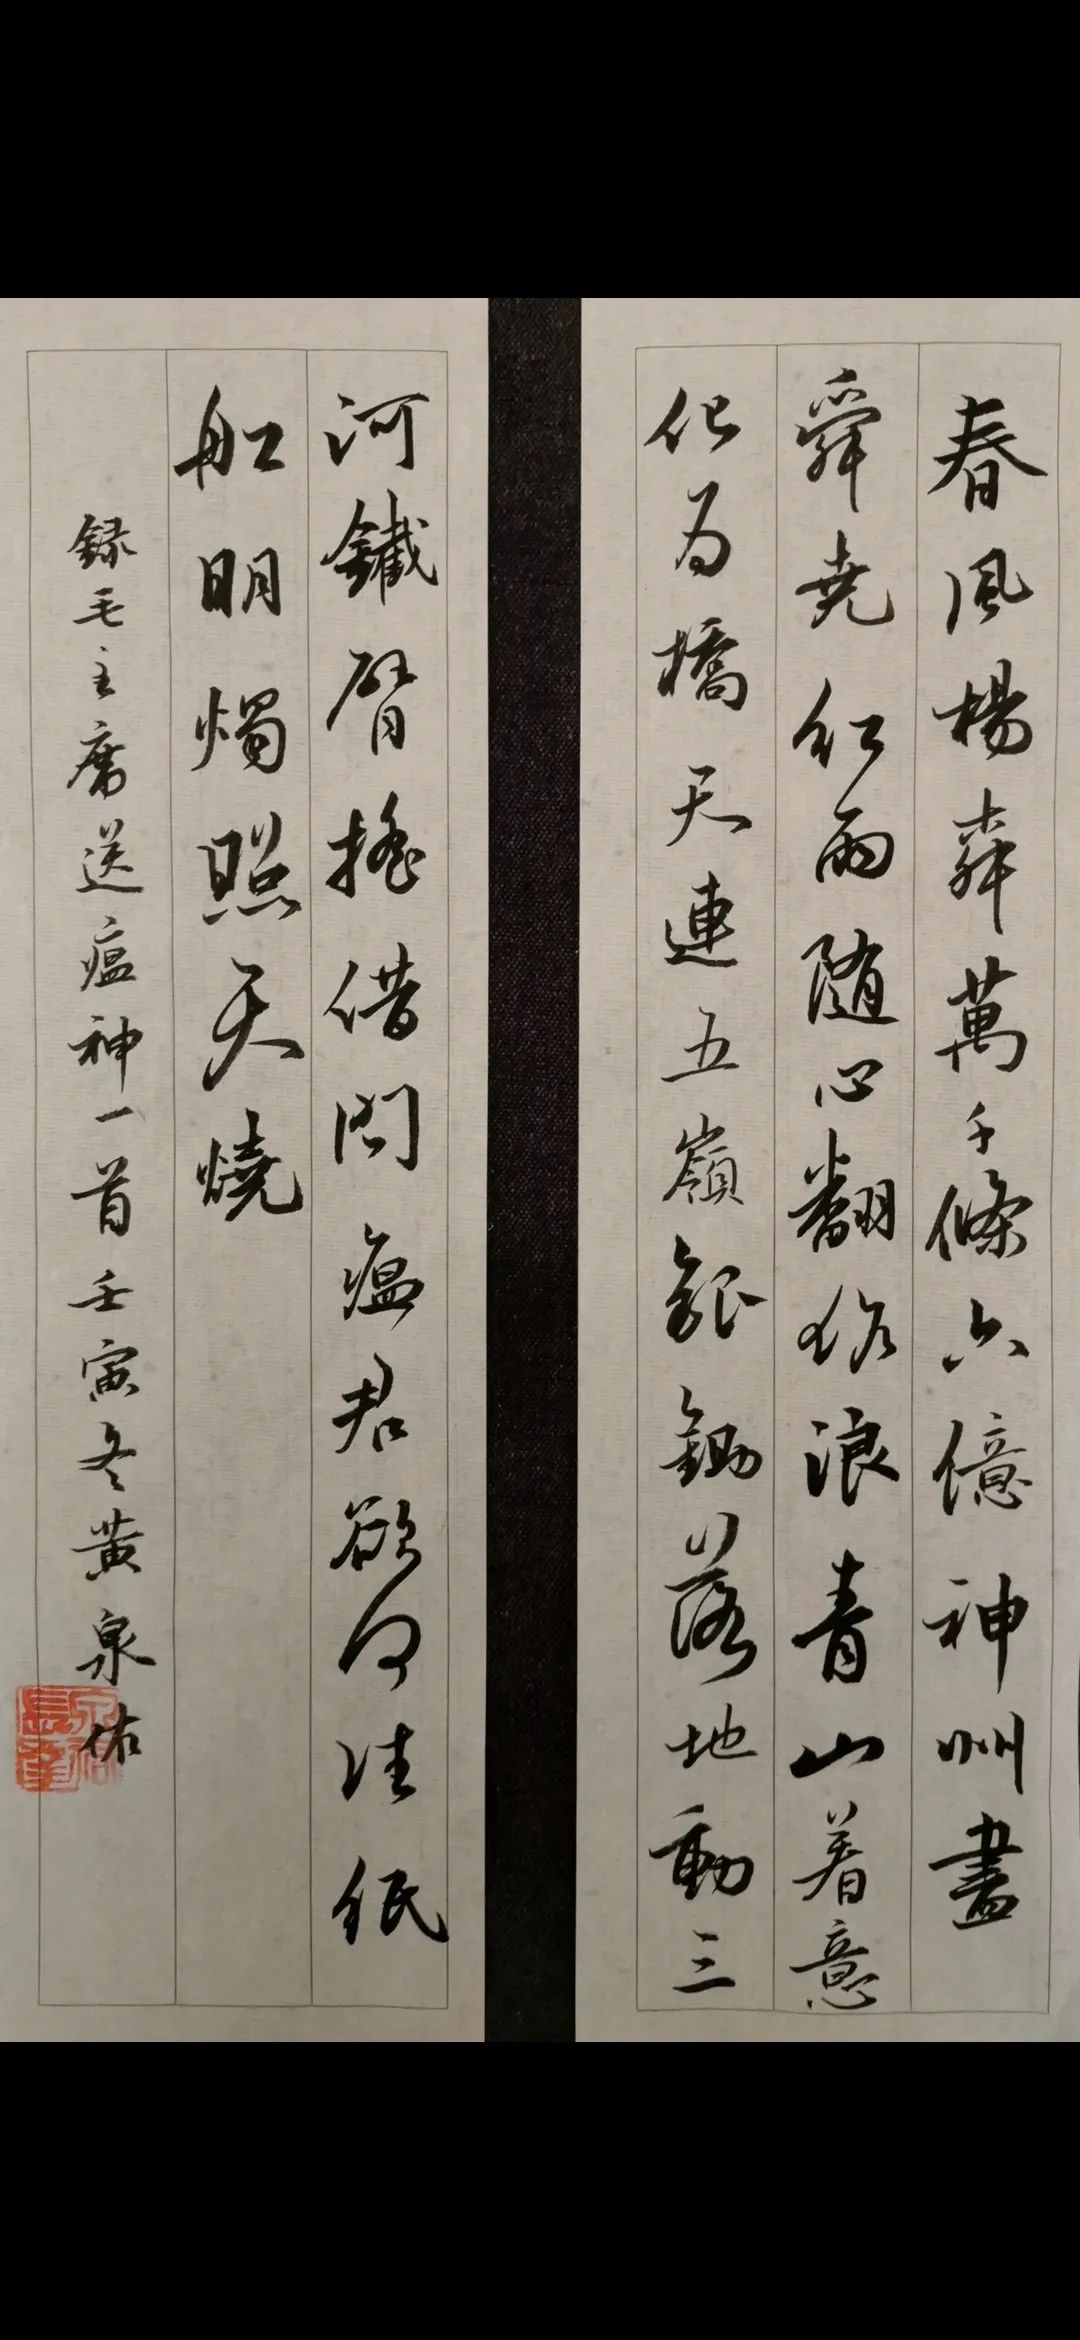 春風楊萬千條六億神州盡
舜堯紅雨随心翻作浪青山着意
化为橋天連五嶺銀鋤落地動三
河鐵臂搖借問瘟君欲何往紙
船明燭照天燒
録毛主席送瘟神一首壬寅冬黄泉佑